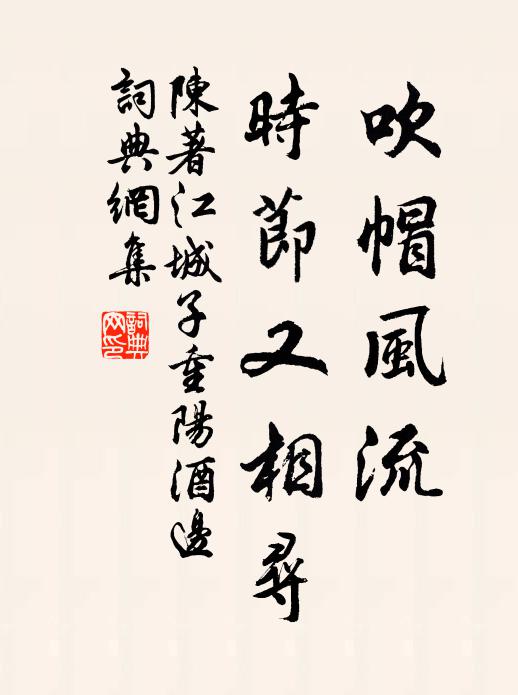 吹帽風流
時節又相尋
陳著江城子重陽酒邊
詞典網集
詞典網印